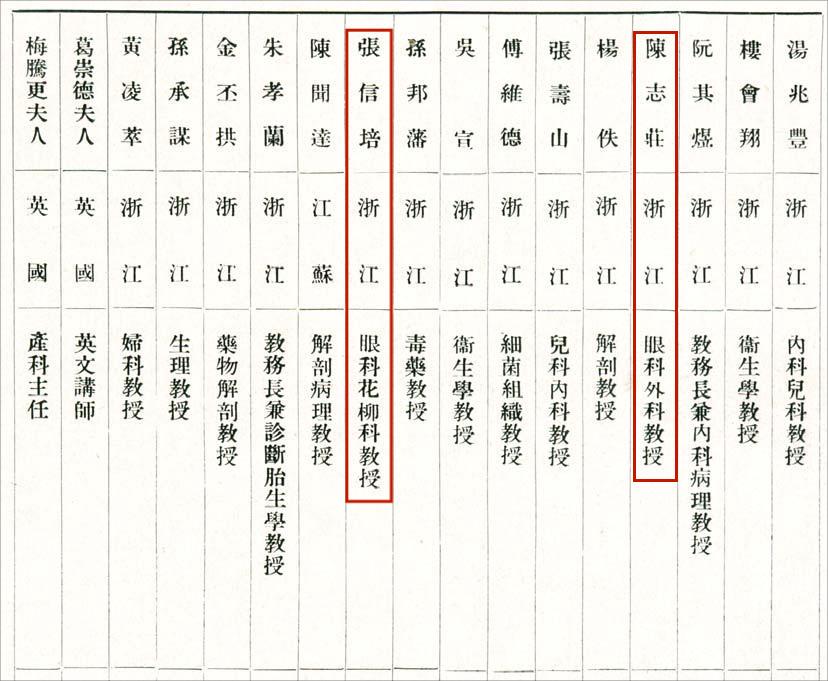 湯兆豐 浙江 內科兒科教授
樓會翔 浙江 衞生學教授
阮其煜 浙江 教務長兼內科病理教授
陳志莊 浙江 眼科外科教授
楊佚 浙江 解剖教授
張壽山 浙江 兒科內科教授
傅維德 浙江 細菌組織教授
吳宣 浙江 衞生學教授
孫邦藩 浙江 毒藥教授
張信培 浙江 眼科花柳科教授
陳聞達 江蘇 解剖病理教授
朱孝蘭 浙江 教務長兼診斷胎生學教授
金丕拱 浙江 藥物解剖教授
孫承謀 浙江 生理教授
黃凌萃 浙江 婦科教授
葛崇德夫人 英國 英文講師
梅騰更夫人 英國 產科主任